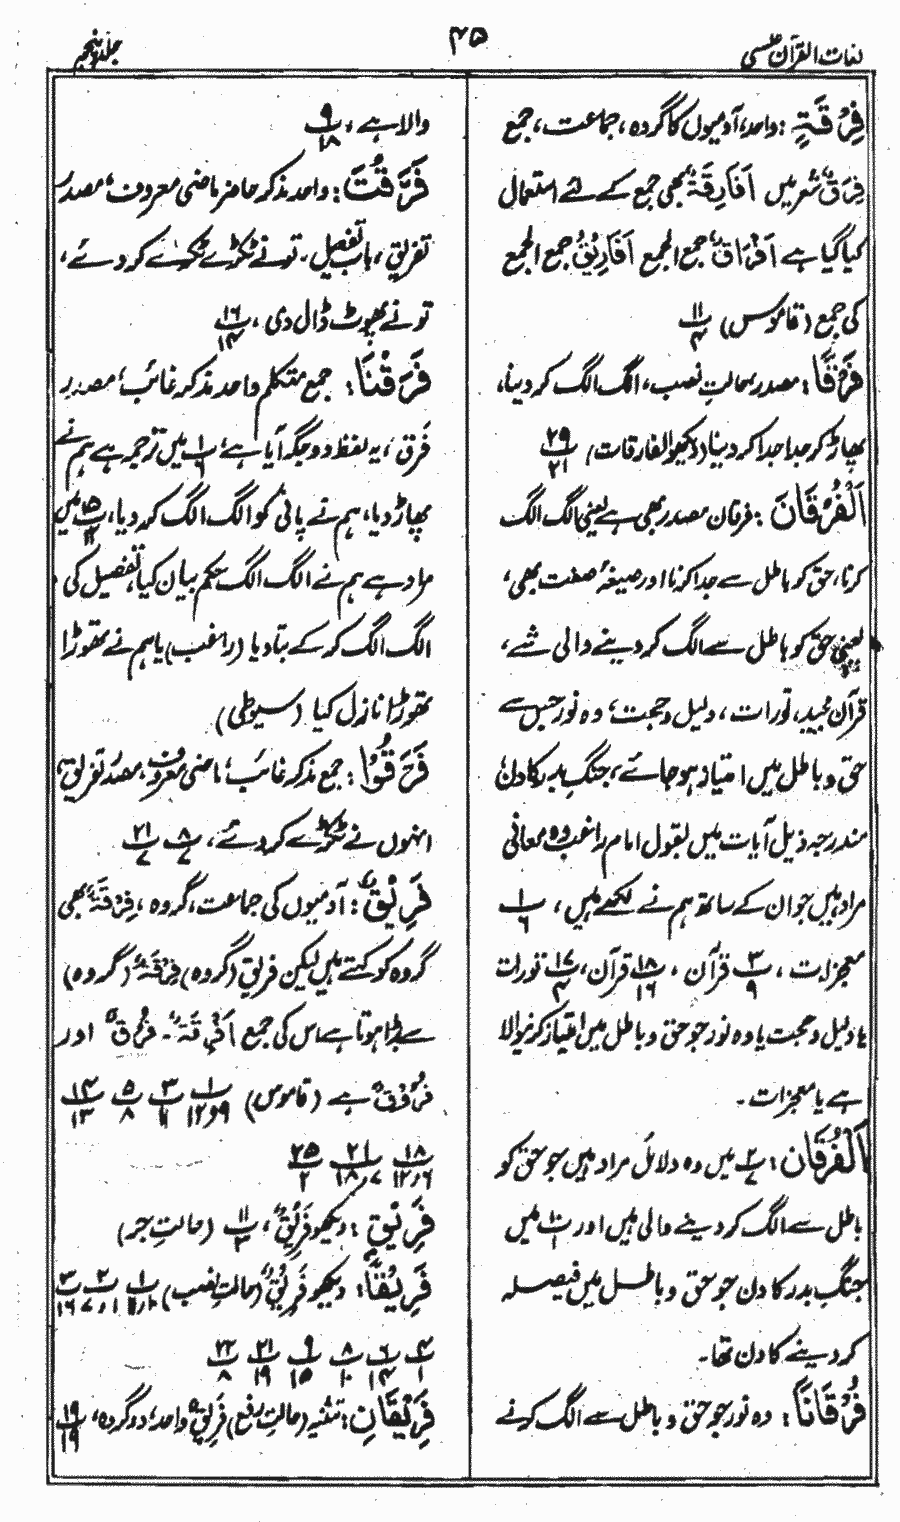 لغات القرآن عکسی
۴۵
جلد پنجم
فِرْقَةٍ: واحد، آدمیوں کا گروہ، جماعت، جمع
فِرَقٌ شعر میں اَفَارِقَةٌ بھی جمع کے لئے استعمال
کیا گیا ہے اَفْرَاقٌ جمع الجمع اَفَارِیْقُ جمع الجمع
کی جمع (قاموس) ۱۱/۴
فَرْقًا: مصدر بحالتِ نصب، الگ الگ کر دینا،
پھاڑ کر جدا جدا کر دینا (دیکھو الفارقات) ۲۹/۲۱
اَلْفُرْقَانَ: فرقان مصدر بھی ہے یعنی الگ الگ
کرنا، حق کو باطل سے جدا کرنا اور صیغۂ صفت بھی،
یعنی حق کو باطل سے الگ کر دینے والی شے،
قرآن مجید، تورات، دلیل و حجت، وہ نور جس سے
حق و باطل میں امتیاز ہو جائے، جنگِ بدر کا دن،
مندرجہ ذیل آیات میں بقول امام راغب وہ معانی
مراد ہیں جو ان کے ساتھ ہم نے لکھے ہیں، ۱/۶
معجزات، ۳/۹ قرآن، ۱۸/۱۶ قرآن، ۱۷/۴ تورات
یا دلیل و حجت یا وہ نور جو حق و باطل میں امتیاز کرنیوالا
ہے یا معجزات۔
اَلْفُرْقَانِ: ۲/۷ میں وہ دلائل مراد ہیں جو حق کو
باطل سے الگ کر دینے والی ہیں اور ۱۰/۱ میں
جنگِ بدر کا دن جو حق و باطل میں فیصلہ
کر دینے کا دن تھا۔
فُرْقَانًا: وہ نور جو حق و باطل سے الگ کرنے
والا ہے، ۹/۱۸
فَرَّقْتَ: واحد مذکر حاضر ماضی معروف، مصدر
تفریق، باب تفعیل۔ تو نے ٹکڑے ٹکڑے کر دئے،
تو نے پھوٹ ڈال دی، ۱۶/۱۴
فَرَقْنَا: جمع متکلم واحد مذکر غائب، مصدر
فَرق، یہ لفظ دو جگہ آیا ہے، ۱/۶ میں ترجمہ ہے ہم نے
پھاڑ دیا، ہم نے پانی کو الگ الگ کر دیا، ۱۵/۱۲ میں
مراد ہے ہم نے الگ الگ حکم بیان کیا، تفصیل کی،
الگ الگ کر کے بتا دیا (راغب) یا ہم نے تھوڑا
تھوڑا نازل کیا (سیوطی)
فَرَّقُوْا: جمع مذکر غائب، ماضی معروف، مصدر تفریق،
انہوں نے ٹکڑے کر دئے، ۸/۷ ۲۱/۷
فَرِیْقٌ: آدمیوں کی جماعت، گروہ، فِرْقَةٌ بھی
گروہ کو کہتے ہیں لیکن فریق (گروہ) فِرْقَةٌ (گروہ)
سے بڑا ہوتا ہے اس کی جمع اَفْرِقَةٌ۔ فُرُقٌ اور
فُرُوْقٌ ہے (قاموس) ۱/۱۲و۹ ۳/۱۱ ۵/۸ ۱۴/۱۳
۱۸/۱۲،۶ ۲۱/۱۸،۷ ۲۵/۲
فَرِیْقٍ: دیکھو فَرِیْقٌ، ۱۱/۳ (حالتِ جر)
فَرِیْقًا: دیکھو فَرِیْقٌ (حالتِ نصب) ۱/۱۰،۱۱ ۲/۱،۷ ۳/۱۶
۴/۱ ۶/۱۴ ۸/۱۰ ۹/۱۵ ۲۱/۱۹ ۲۲/۸
فَرِیْقَانِ: تثنیہ (حالتِ رفع) فَرِیْقٌ واحد، دو گروہ، ۱۹/۱۹